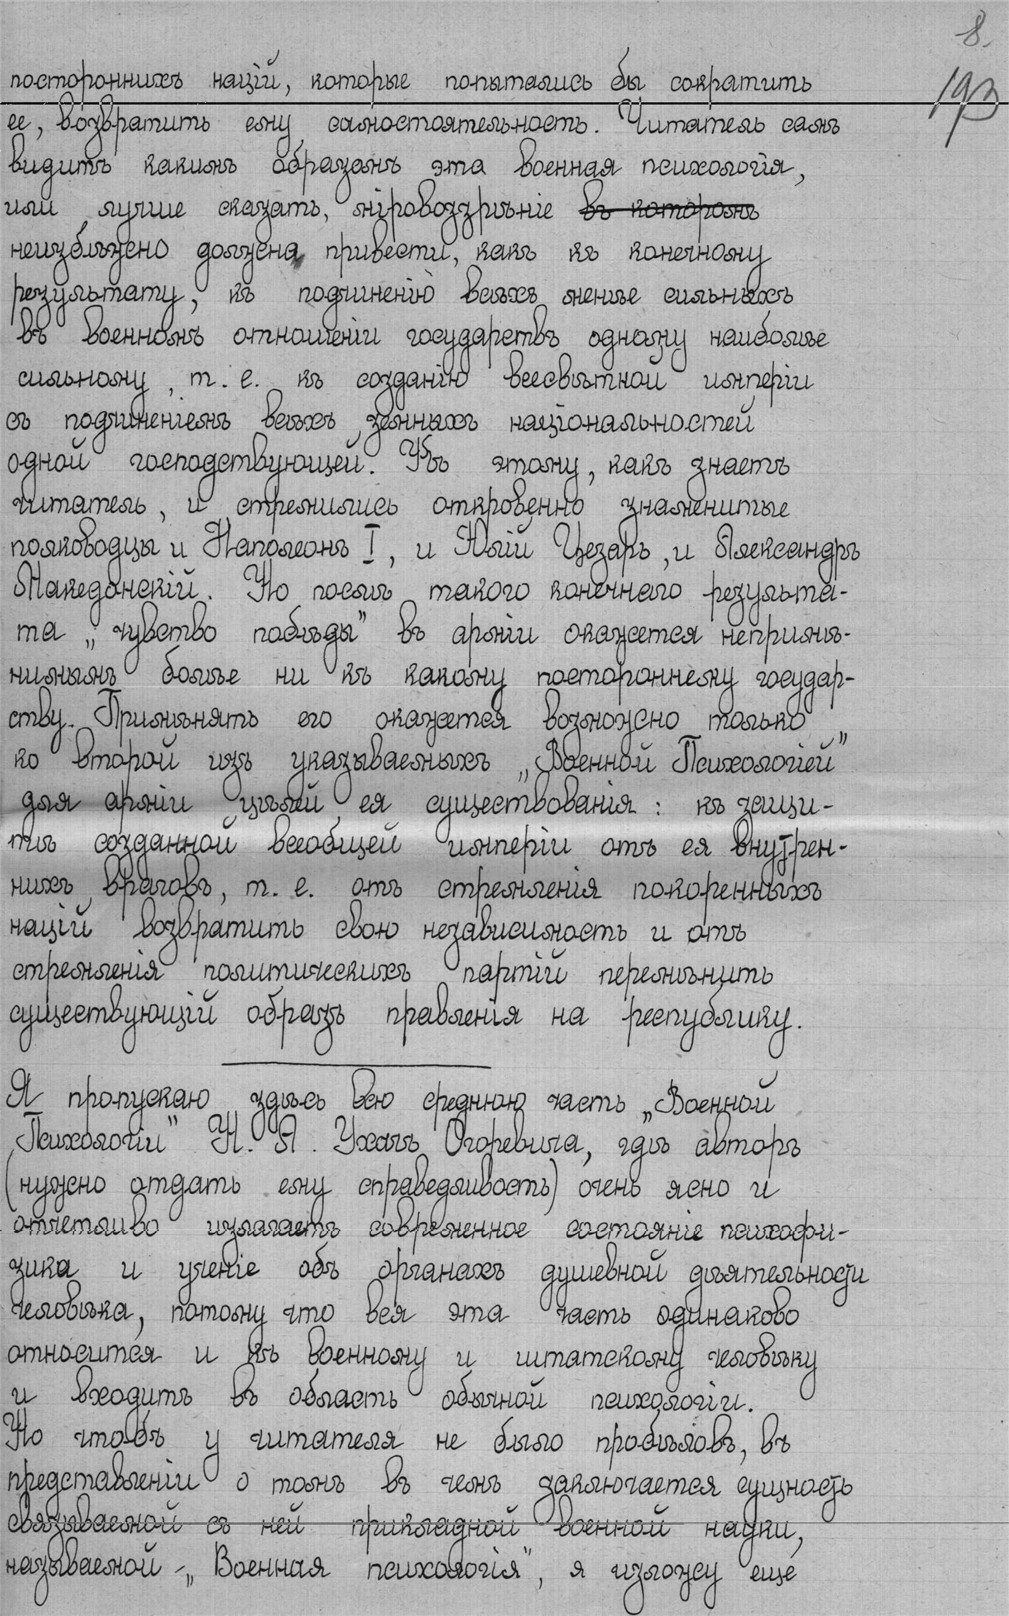 8.
193
постороннихъ націй, которые попытались бы сократить
ее, возвратить ему самостоятельность. Читатель самъ
видитъ какимъ образомъ эта военная психологія,
или лучше сказать, міровоззрѣніе въ которомъ
неизбѣжно должена привести, какъ къ конечному
результату, къ подчиненію всѣхъ менѣе сильныхъ
въ военномъ отношеніи государствъ одному наиболѣе
сильному, т. е. къ созданію всесвѣтной имперіи
съ подчиненіемъ всѣхъ земныхъ національностей
одной господствующей. Къ этому, какъ знаетъ
читатель, и стремились откровенно знаменитые
полководцы и Наполеонъ I, и Юлій Цезарь, и Александръ
Македонскій. Но послѣ такого конечнаго результа-
та „чувство побѣды" въ арміи окажется непримѣ-
нимымъ болѣе ни къ какому постороннему государ-
ству. Примѣнять его окажется возможно только
ко второй изъ указываемыхъ „Военной Психологіей"
для арміи цѣлей ея существованія: къ защи-
тѣ созданной всеобщей имперіи отъ ея внутрен-
нихъ враговъ, т. е. отъ стремленія покоренныхъ
націй возвратить свою независимость и отъ
стремленія политическихъ партій перемѣнить
существующій образъ правленія на республику.
Я пропускаю здѣсь всю среднюю часть „Военной
Психологіи" Н. А. Ухачъ Огоревича, гдѣ авторъ
(нужно отдать ему справедливость) очень ясно и
отчетливо излагаетъ современное состояніе психофи-
зика и ученіе объ органахъ душевной дѣятельности
человѣка, потому что вся эта часть одинаково
относится и къ военному и штатскому человѣку
и входитъ въ область обычной психологіи.
Но чтобъ у читателя не было пробѣловъ, въ
представленіи о томъ въ чемъ заключается сущность
связываемой съ ней прикладной военной науки,
называемой „Военная психологія", я изложу еще